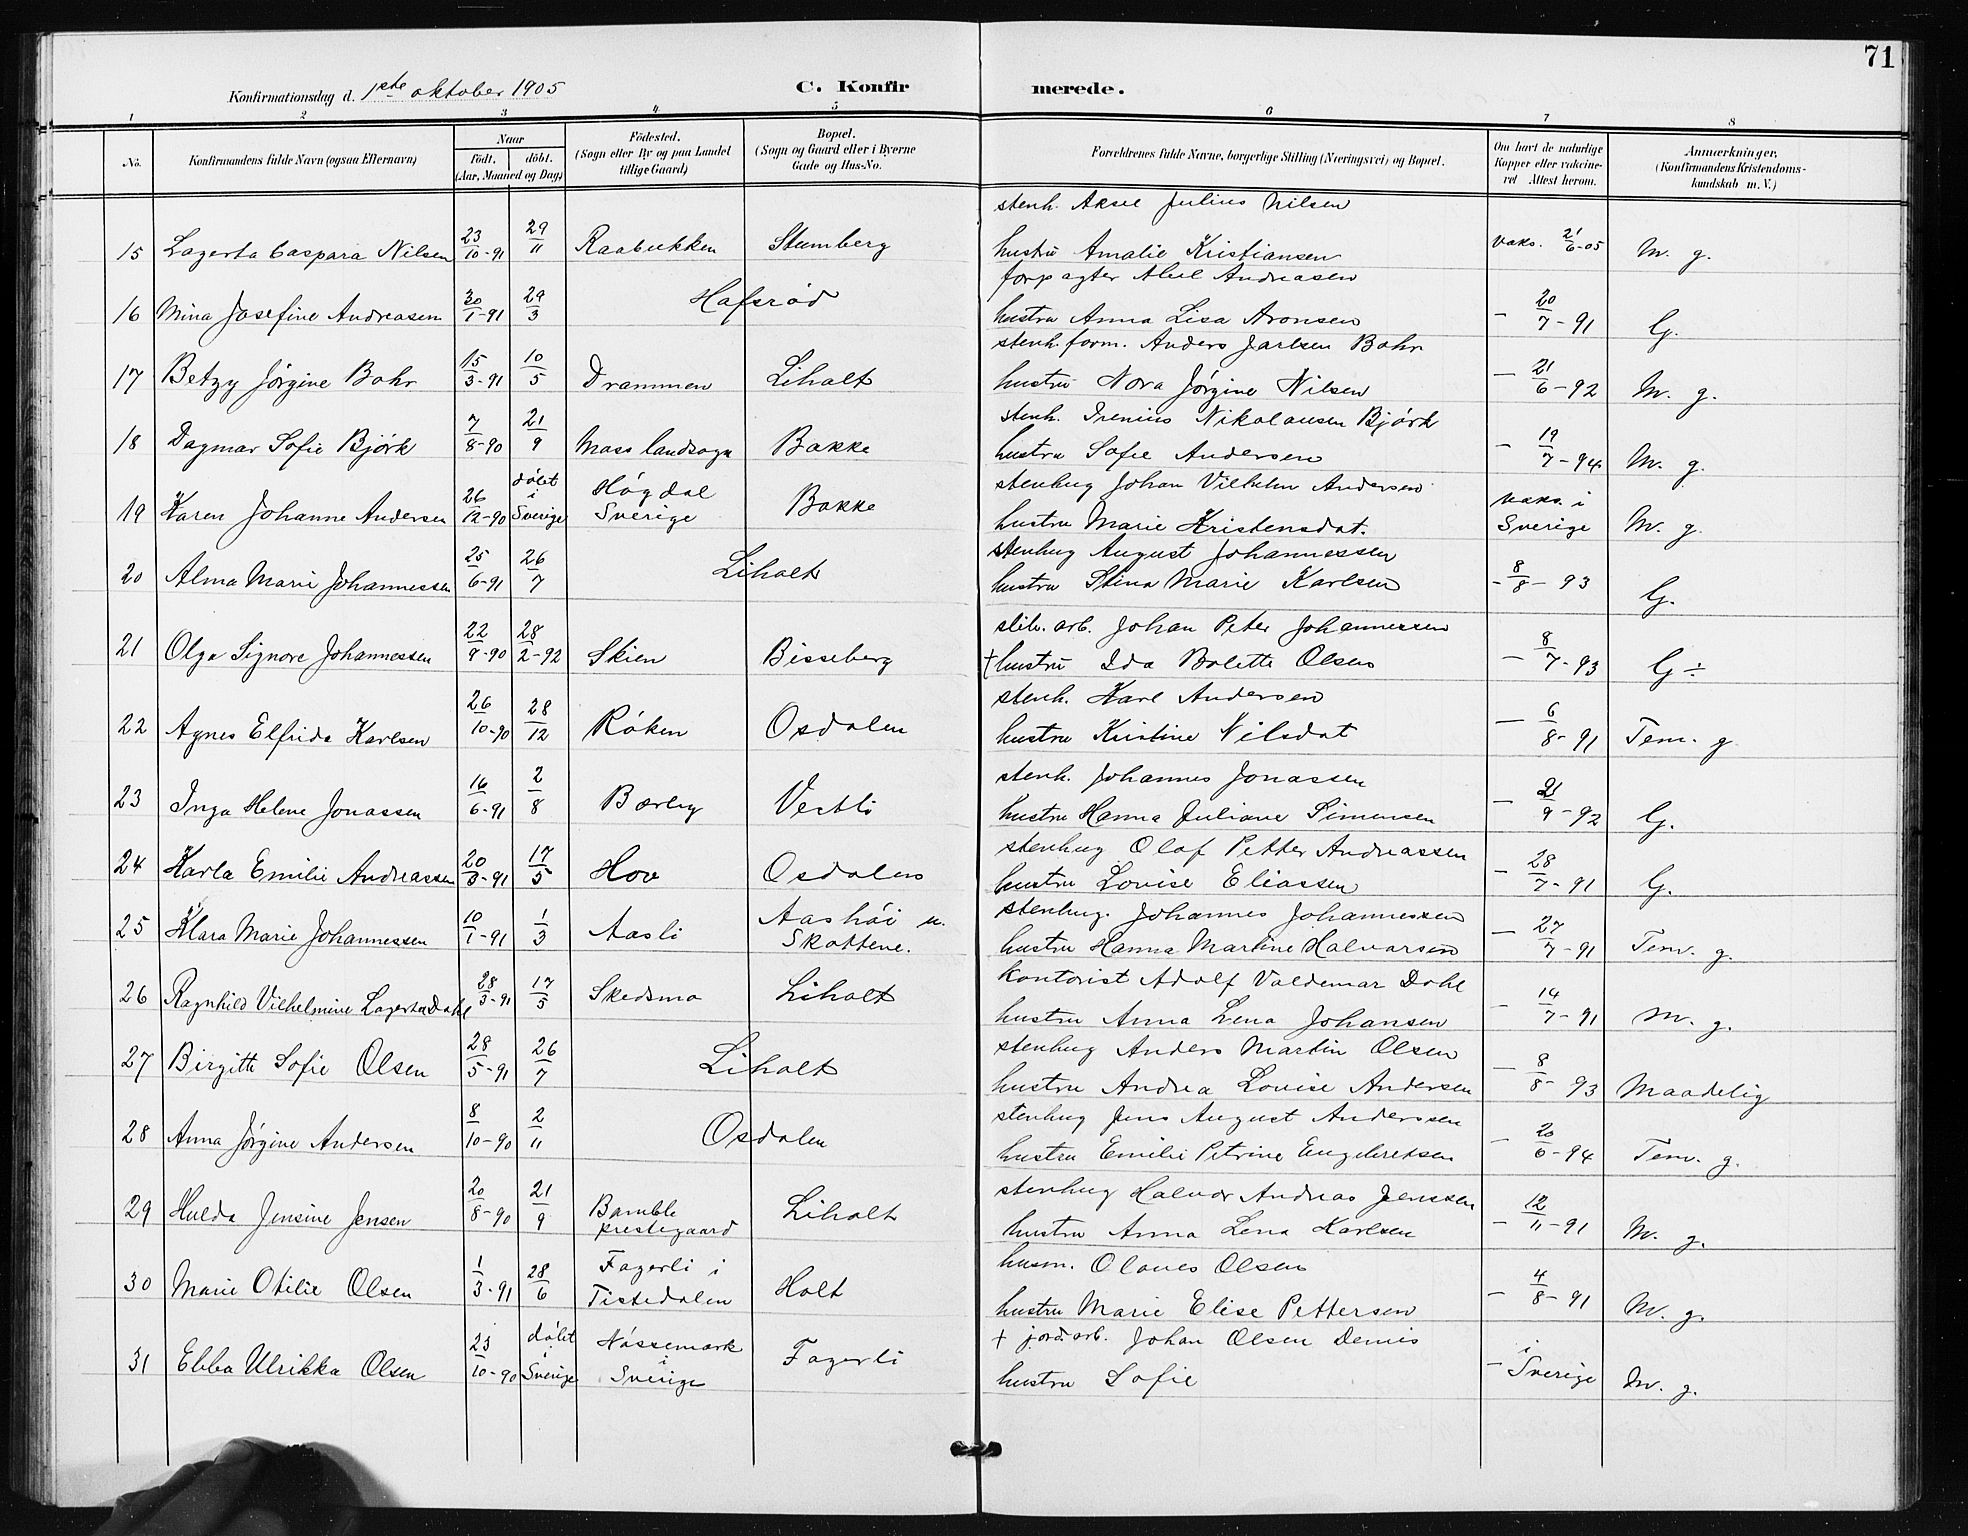 71
Konfirmationsdag d. 1ste oktober 1905 C. Konfirmerede.
1 2 3 4 5 6 7 8
No. Konfirmandens fulde Navn (ogsaa Efternavn) Naar födt. döbt. (Aar, Maaned og Dag) Födested. (Sogn eller By og paa Landet tillige Gaard) Bopæl. (Sogn og Gaard eller i Byerne Gade og Hus-No. Forældrenes fulde Navne, borgerlige Stilling (Næringsvei) og Bopæl. Om havt de naturlige Kopper eller vakcineret Attest herom. Anmærkninger, (Konfirmandens Kristendomskundskab m. V.)
stenh. Aksel Julius Nilsen
15 Lagerta Caspara Nilsen 23/10-91 29/11 Raabukken Stumberg hustru Amalie Kristiansen vaks. 21/6-05 M. g.
forpagter Abel Andreasen
16 Mina Josefine Andreasen 30/1-91 29/3 Hafsröd hustru Anna Lisa Aronsen - 20/7-91 G.
stenh. form. Anders Jarlsen Bohr
17 Betzy Jörgine Bohr 15/3-91 10/5 Drammen Liholt hustru Nora Jörgine Nilsen - 21/6-92 M. g.
stenh. Irenius Nikolausen Björk
18 Dagmar Sofie Björk 7/8-90 21/9 Moss landsogn Bakke hustru Sofie Andersen - 19/7-94 M. g.
döbt i Högdal stenhug Johan Vilhelm Andersen vaks. i
19 Karen Johanne Andersen 26/12-90 Sverige Sverige Bakke hustru Marie Kristensdat. Sverige M. g.
stenhug August Johannessen
20 Alma Marie Johannessen 25/6-91 26/7 Liholt hustru Stina Marie Karlsen - 8/8-93 G.
slib. arb. Johan Peter Johannessen
21 Olga Signore Johannessen 22/9-90 28/2-92 Skien Bisseberg † hustru Ida Bolette Olsen - 8/7-93 G÷
stenh. Karl Andersen
22 Agnes Elfrida Karlsen 26/10-90 28/12 Röken Osdalen hustru Kristine Nilsdat - 6/8-91 Tem. g
stenh. Johannes Jonassen
23 Inga Helene Jonassen 16/6-91 2/8 Bærby Vestli hustru Hanna Juliane Simensen - 21/9-92 G.
stenhug Olaf Petter Andreassen
24 Karla Emilie Andreassen 20/3-91 17/5 Hov Osdalen hustru Lovise Eliassen - 28/7-91 G.
Aashöi u. stenhug. Johannes Johannessen
25 Klara Marie Johannessen 10/1-91 1/3 Aasli Skottene. hustru Hanna Martine Halvorsen - 27/7-91 Tem. g.
kontorist Adolf Valdemar Dahl
26 Ragnhild Vilhelmine Lagerta Dahl 28/3-91 17/5 Skedsmo Liholt hustru Anna Lena Johansen - 14/7-91 M. g.
stenhug Anders Martin Olsen
27 Birgitte Sofie Olsen 28/5-91 26/7 Liholt hustru Andrea Lovise Andersen - 8/8-93 Maadelig
stenhug Jens August Anderssen
28 Anna Jörgine Andersen 8/10-90 2/11 Osdalen hustru Emilie Petrine Engebretsen - 20/6-94 Tem. g.
Bamble stenhug Halvor Andreas Jenssen
29 Hulda Jensine Jensen 20/8-90 21/9 prestegaard Liholt hustru Anna Lena Karlsen - 12/11-91 M. g.
Fagerli i husm. Olaves Olsen
30 Marie Otilie Olsen 1/3-91 28/6 Tistedalen Holt hustru Marie Elise Pettersen - 4/8-91 M. g.
döbt i Nössemark i † jordarb. Johan Olsen Demis i
31 Ebba Ulrikka Olsen 23/10-90 Sverige Sverige Fagerli hustru Sofie - Sverige M. g.